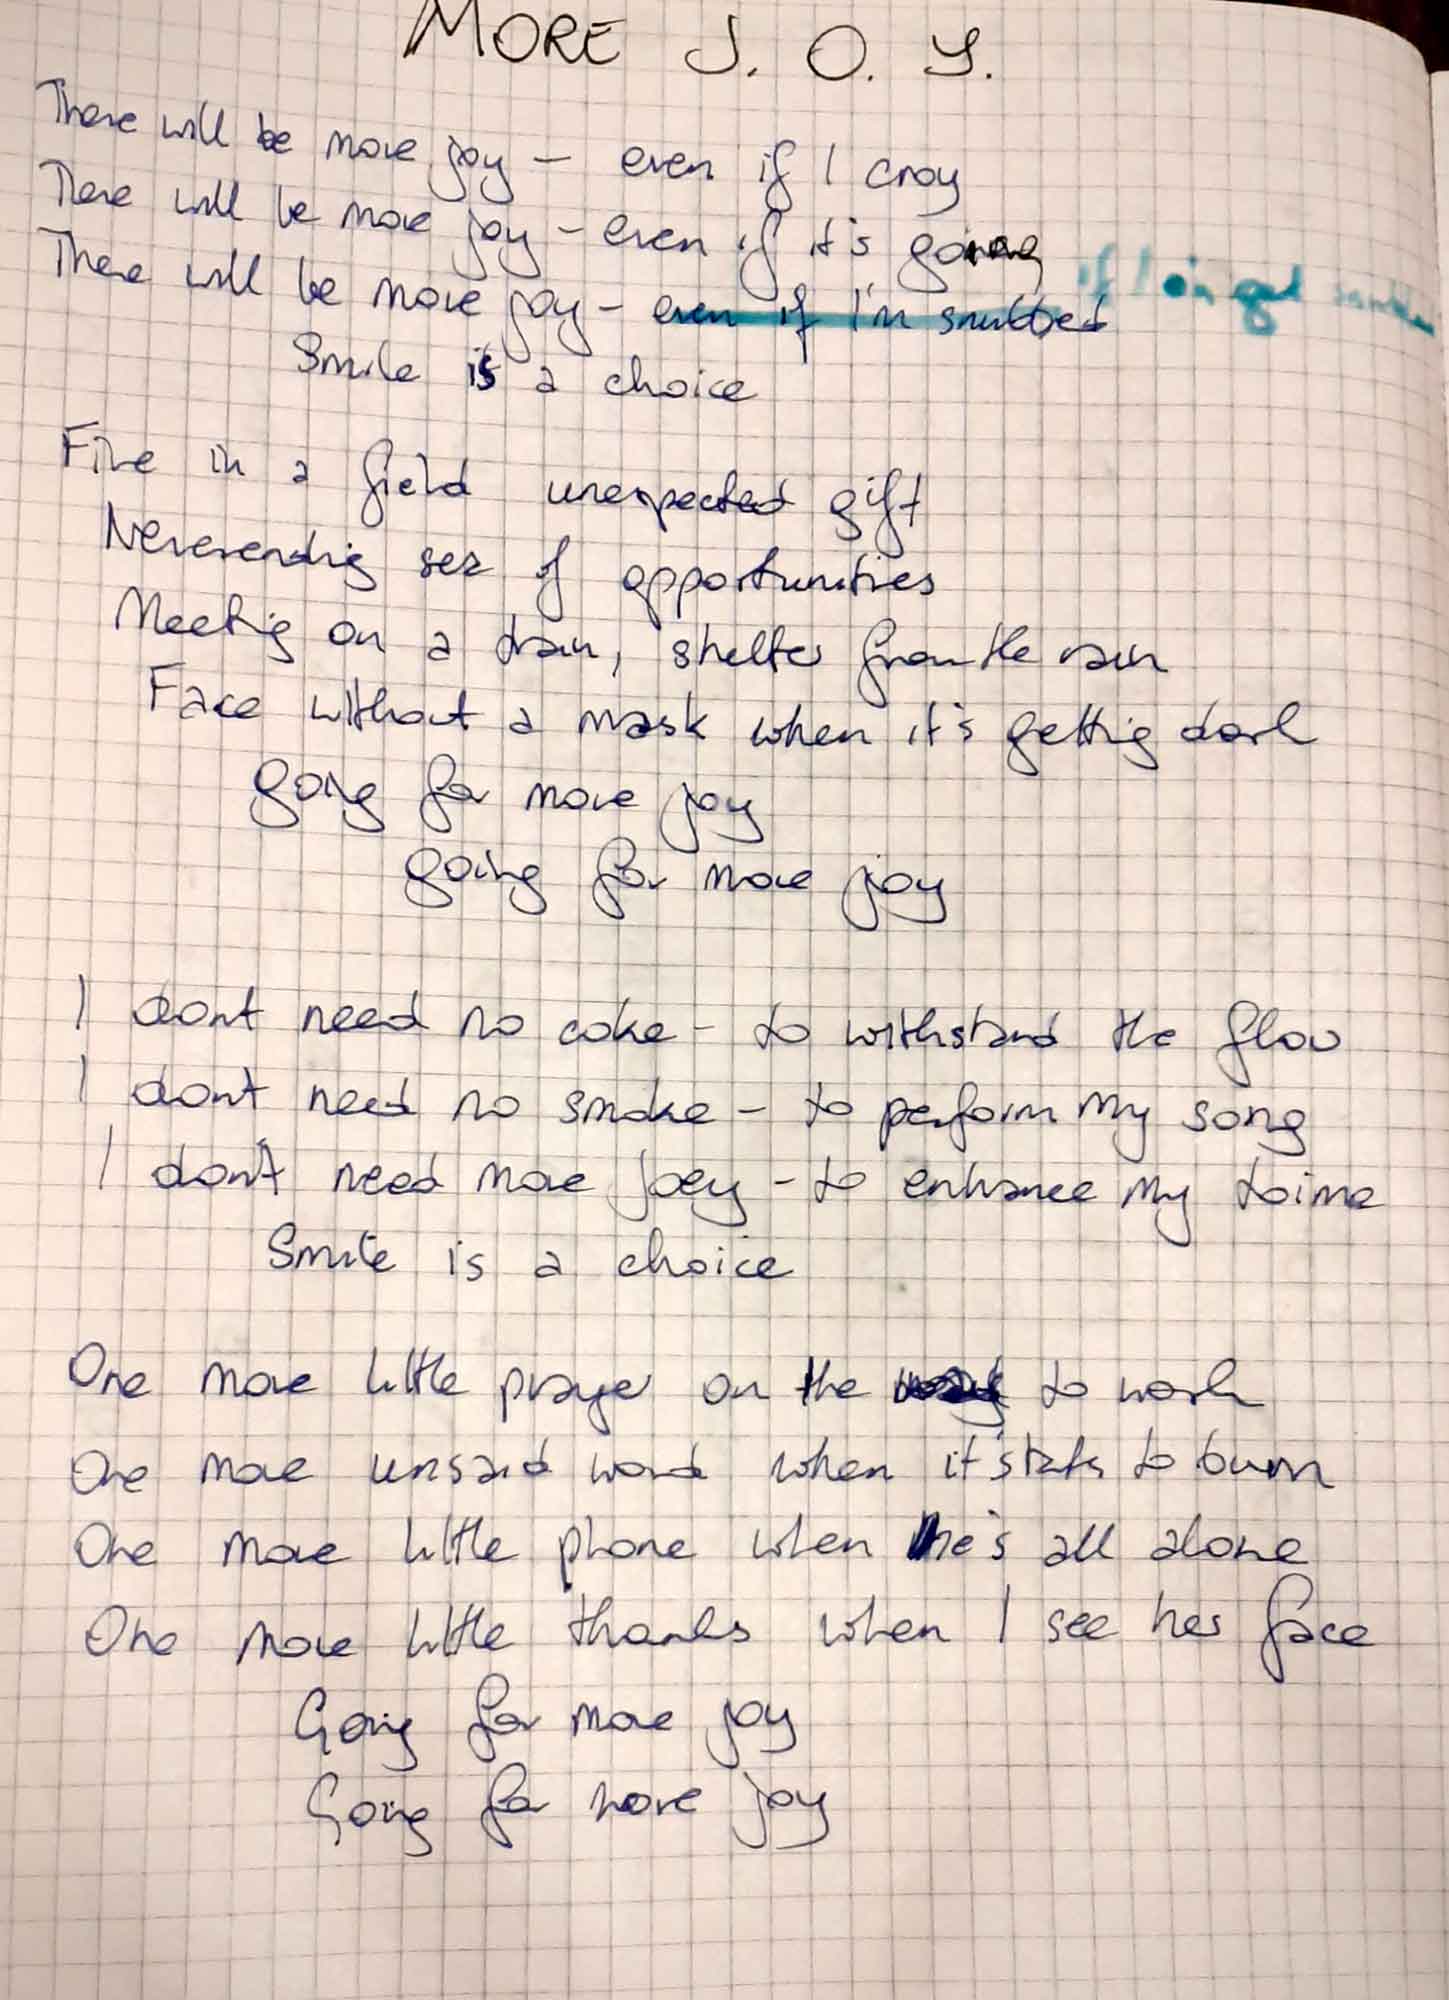 MORE J. O. Y.
There will be more joy – even if I croy
There will be more joy – even if it's going
There will be more joy – even if I'm snubbed if I
Smile is a choice
Fire in a field unexpected gift
Neverending sea of opportunities
Meeting on a train, shelter from the rain
Face without a mask when it's getting dark
going for more joy
going for more joy
I dont need no coke – to withstand the flow
I dont need no smoke – to perform my song
I don't need more joey – to enhance my toime
Smile is a choice
One more little prayer on the way to work
One more unsaid word when it starts to burn
One more little phone when he's all alone
One more little thanks when I see her face
Going for more joy
Going for more joy